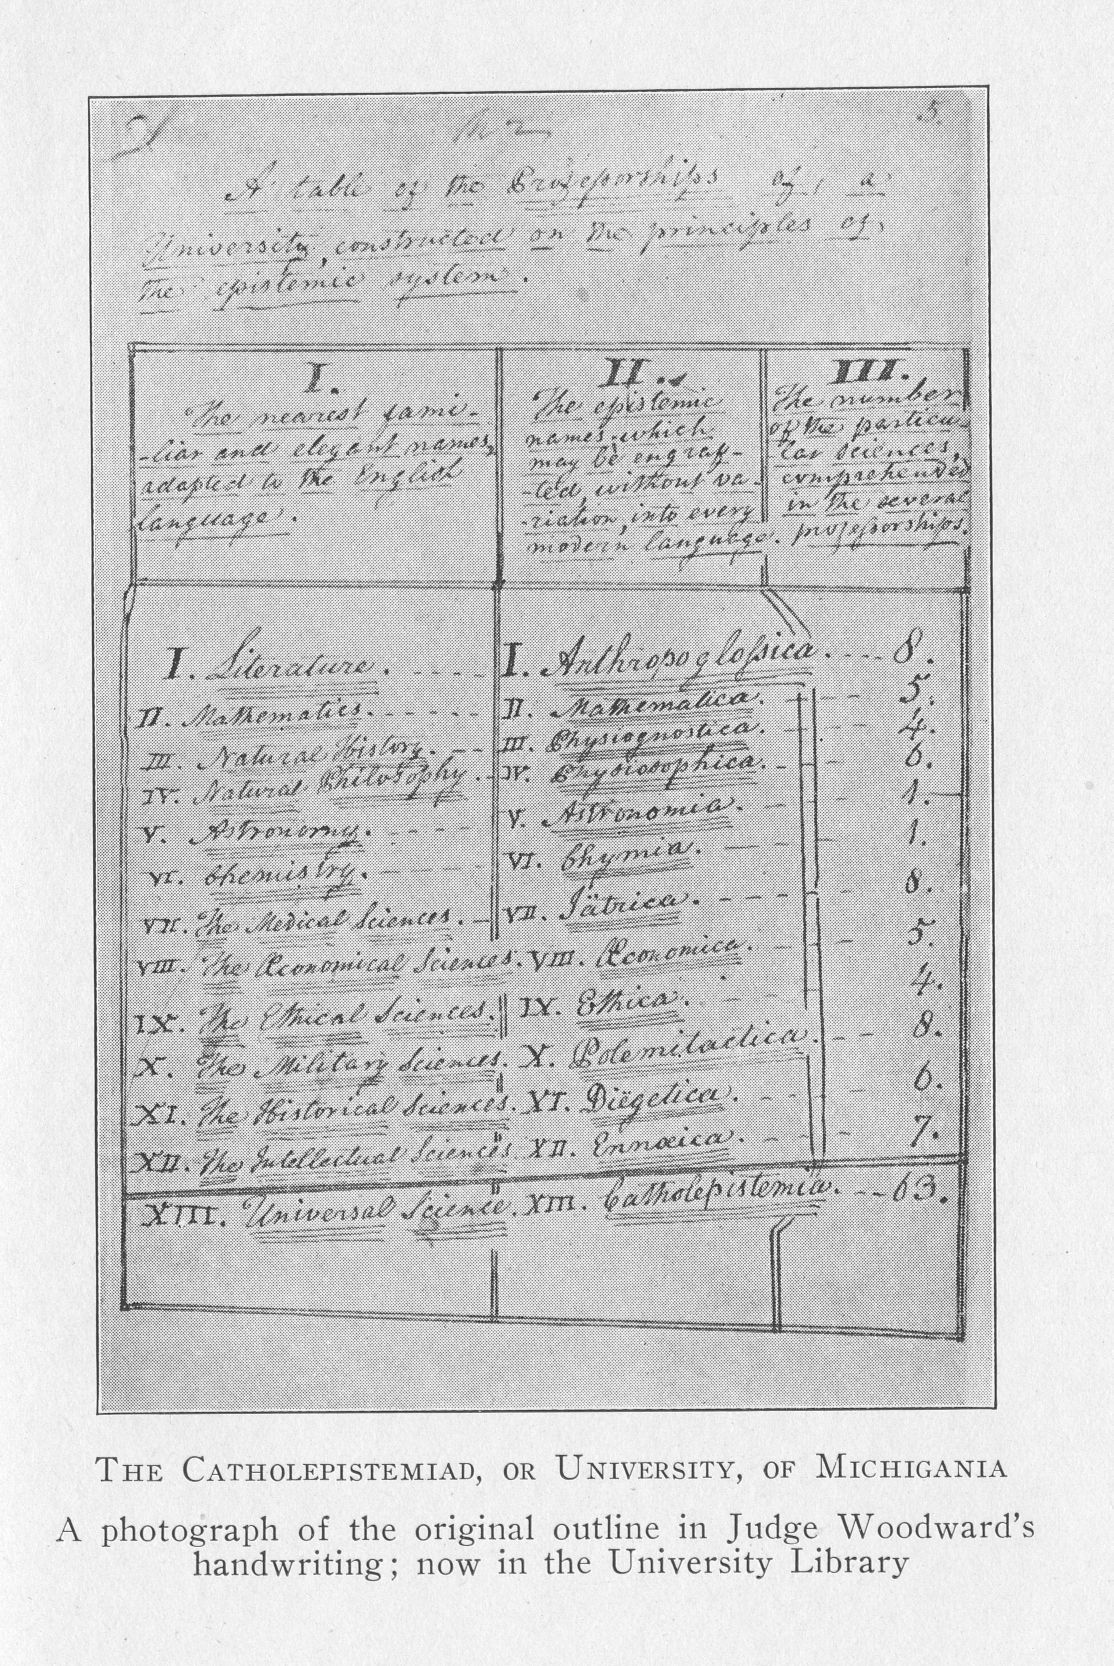 5.
A table of the Professorships of, a
University, constructed on the principles of,
the epistemic system.
I.
The nearest fami-
-liar and elegant names,
adapted to the English
language.
II.
The epistemic
names, which
may be engraf-
-ted, without va-
-riation, into every
modern language.
III.
The number
of the particu-
lar sciences,
comprehended
in the several
professorships.
I. Literature. . . . . I. Anthropoglossica. . . . . 8.
II. Mathematics. - - - - - II. Mathematica. - - - 5.
III. Natural History. - - III. Physiognostica. - - 4.
IV. Natural Philosophy. - IV. Physiosophica. - - - 6.
V. Astronomy. - - - - V. Astronomia. - - - 1.
VI. Chemistry. - - - - VI. Chymia. - - - 1.
VII. The Medical Sciences. - VII. Jätrica. - - - - - 8.
VIII. The Œconomical Sciences. VIII. Œconomica. - - - 5.
IX. The Ethical Sciences. IX. Ethica. - - - 4.
X. The Military Sciences. X. Polemitactica. - - 8.
XI. The Historical Sciences. XI. Diëgetica. - - - 6.
XII. The Intellectual Sciences. XII. Ennœica. - - - 7.
XIII. Universal Science. XIII. Catholepistemia. - - 63.
The Catholepistemiad, or University, of Michigania
A photograph of the original outline in Judge Woodward's
handwriting; now in the University Library